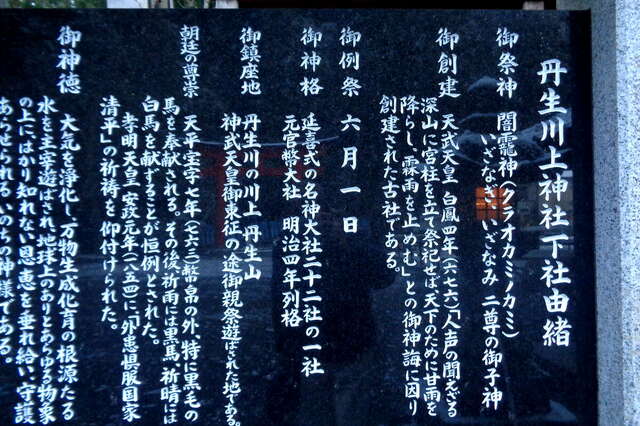 丹生川上神社下社由緒
御祭神 闇龗神(クラオカミノカミ)
いざなぎ、いざなみ 二尊の御子神
御創建 天武天皇 白鳳四年(六七六)「人声の聞えざる
深山に宮柱を立て祭祀せば、天下のために甘雨を
降らし、霖雨を止めむ」との御神誨に因り
創建された古社である。
御例祭 六月一日
御神格 延喜式の名神大社 二十二社の一社
元官幣大社 明治四年列格
御鎮座地 丹生川の川上 丹生山
神武天皇御東征の途御親祭遊ばされた地である。
朝廷の尊崇 天平宝字七年(七六三)幣帛の外、特に黒毛の
馬を奉献される。その後祈雨には黒馬、祈晴には
白馬を献ずることが恒例とされた。
孝明天皇 安政元年(一八五四)に、「外患惧服国家
清平」の祈祷を仰付けられた。
御神徳 大気を浄化し、万物生成化育の根源たる
水を主宰遊ばされ、地球上のありとあらゆる物象
の上に、はかり知れない恩恵を垂れ給い、守護
あらせられる、いのちの神様である。